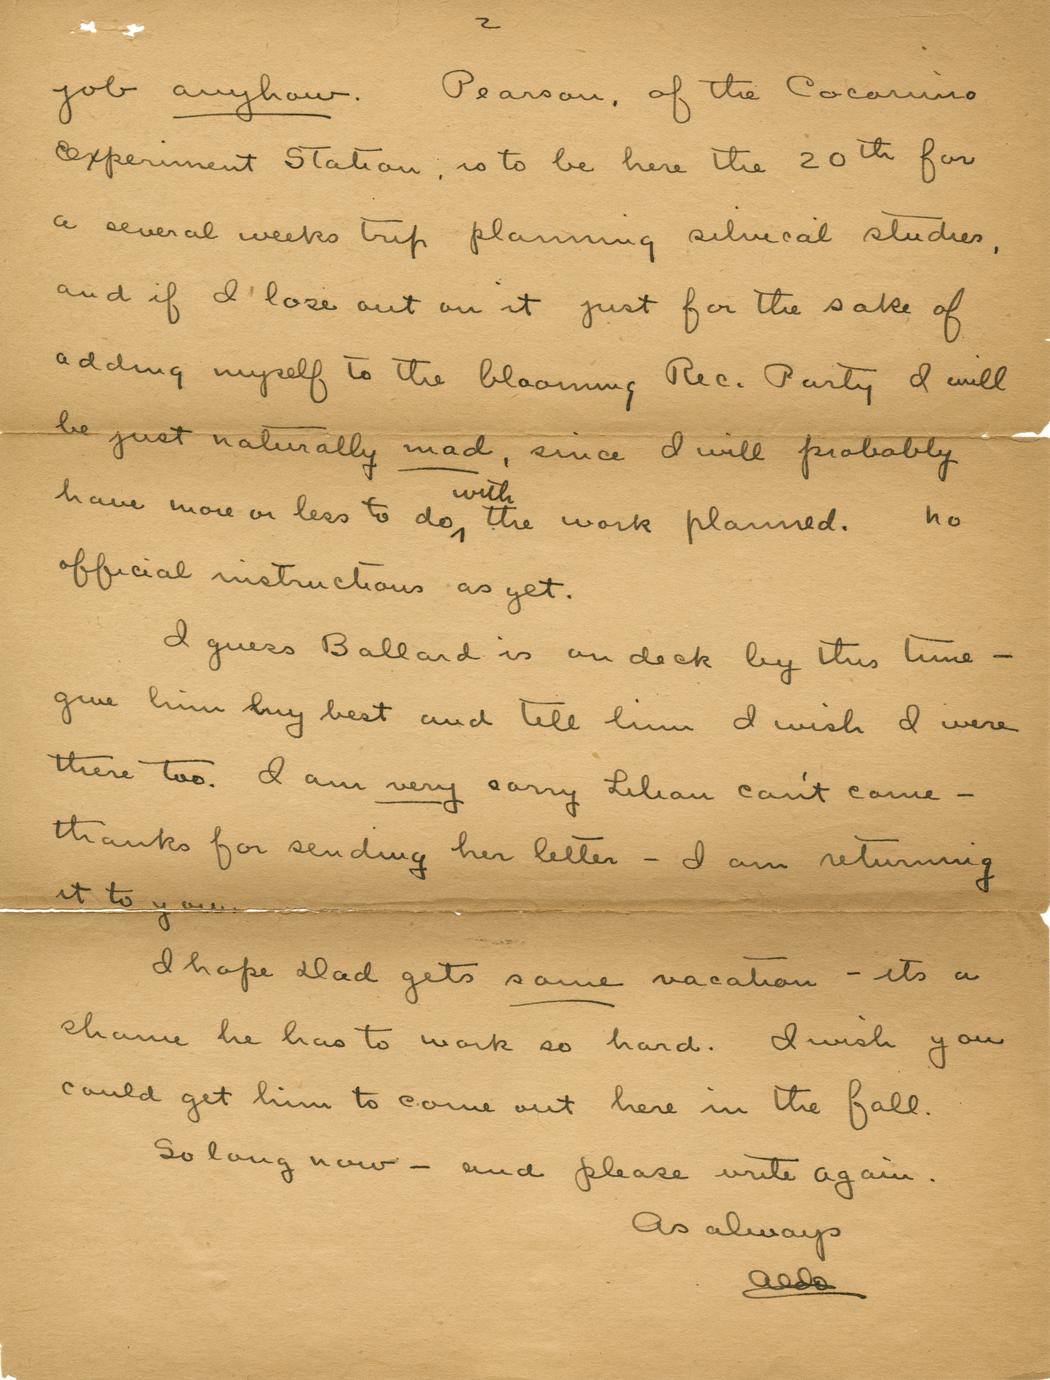 2
job anyhow. Pearson, of the Coconino
Experiment Station, is to be here the 20th for
a several weeks trip planning silvical studies,
and if I lose out on it just for the sake of
adding myself to the blooming Rec. Party I will
be just naturally mad, since I will probably
have more or less to do with the work planned. No
official instructions as yet.
I guess Ballard is on deck by this time –
give him my best and tell him I wish I were
there too. I am very sorry Lilian can't come –
thanks for sending her letter – I am returning
it to you.
I hope Dad gets some vacation – its a
shame he has to work so hard. I wish you
could get him to come out here in the fall.
So long now – and please write again.
As always
Aldo